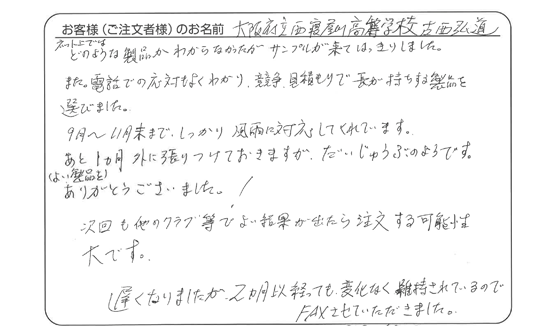 お客様(ご注文者様)のお名前 大阪府立西寝屋川高等学校 古西弘道
ネット上では
どのような製品かわからなかたがサンプルが来てはっきりしました。
また、電話での応対もよくわかり、競争見積もりで長が持ちする製品を
選びました。
9月〜11月末まで、しっかり風雨に対応してくれています。
あと1カ月外に張りつけておきますが、だいじょうぶのようです。
(よい製品を)
ありがとうございました。!
次回も他のクラブ等でよい結果が出たら注文する可能性
大です。
遅くなりましたが、2カ月以経っても、変化なく維持されているので
FAXさせていただきました。